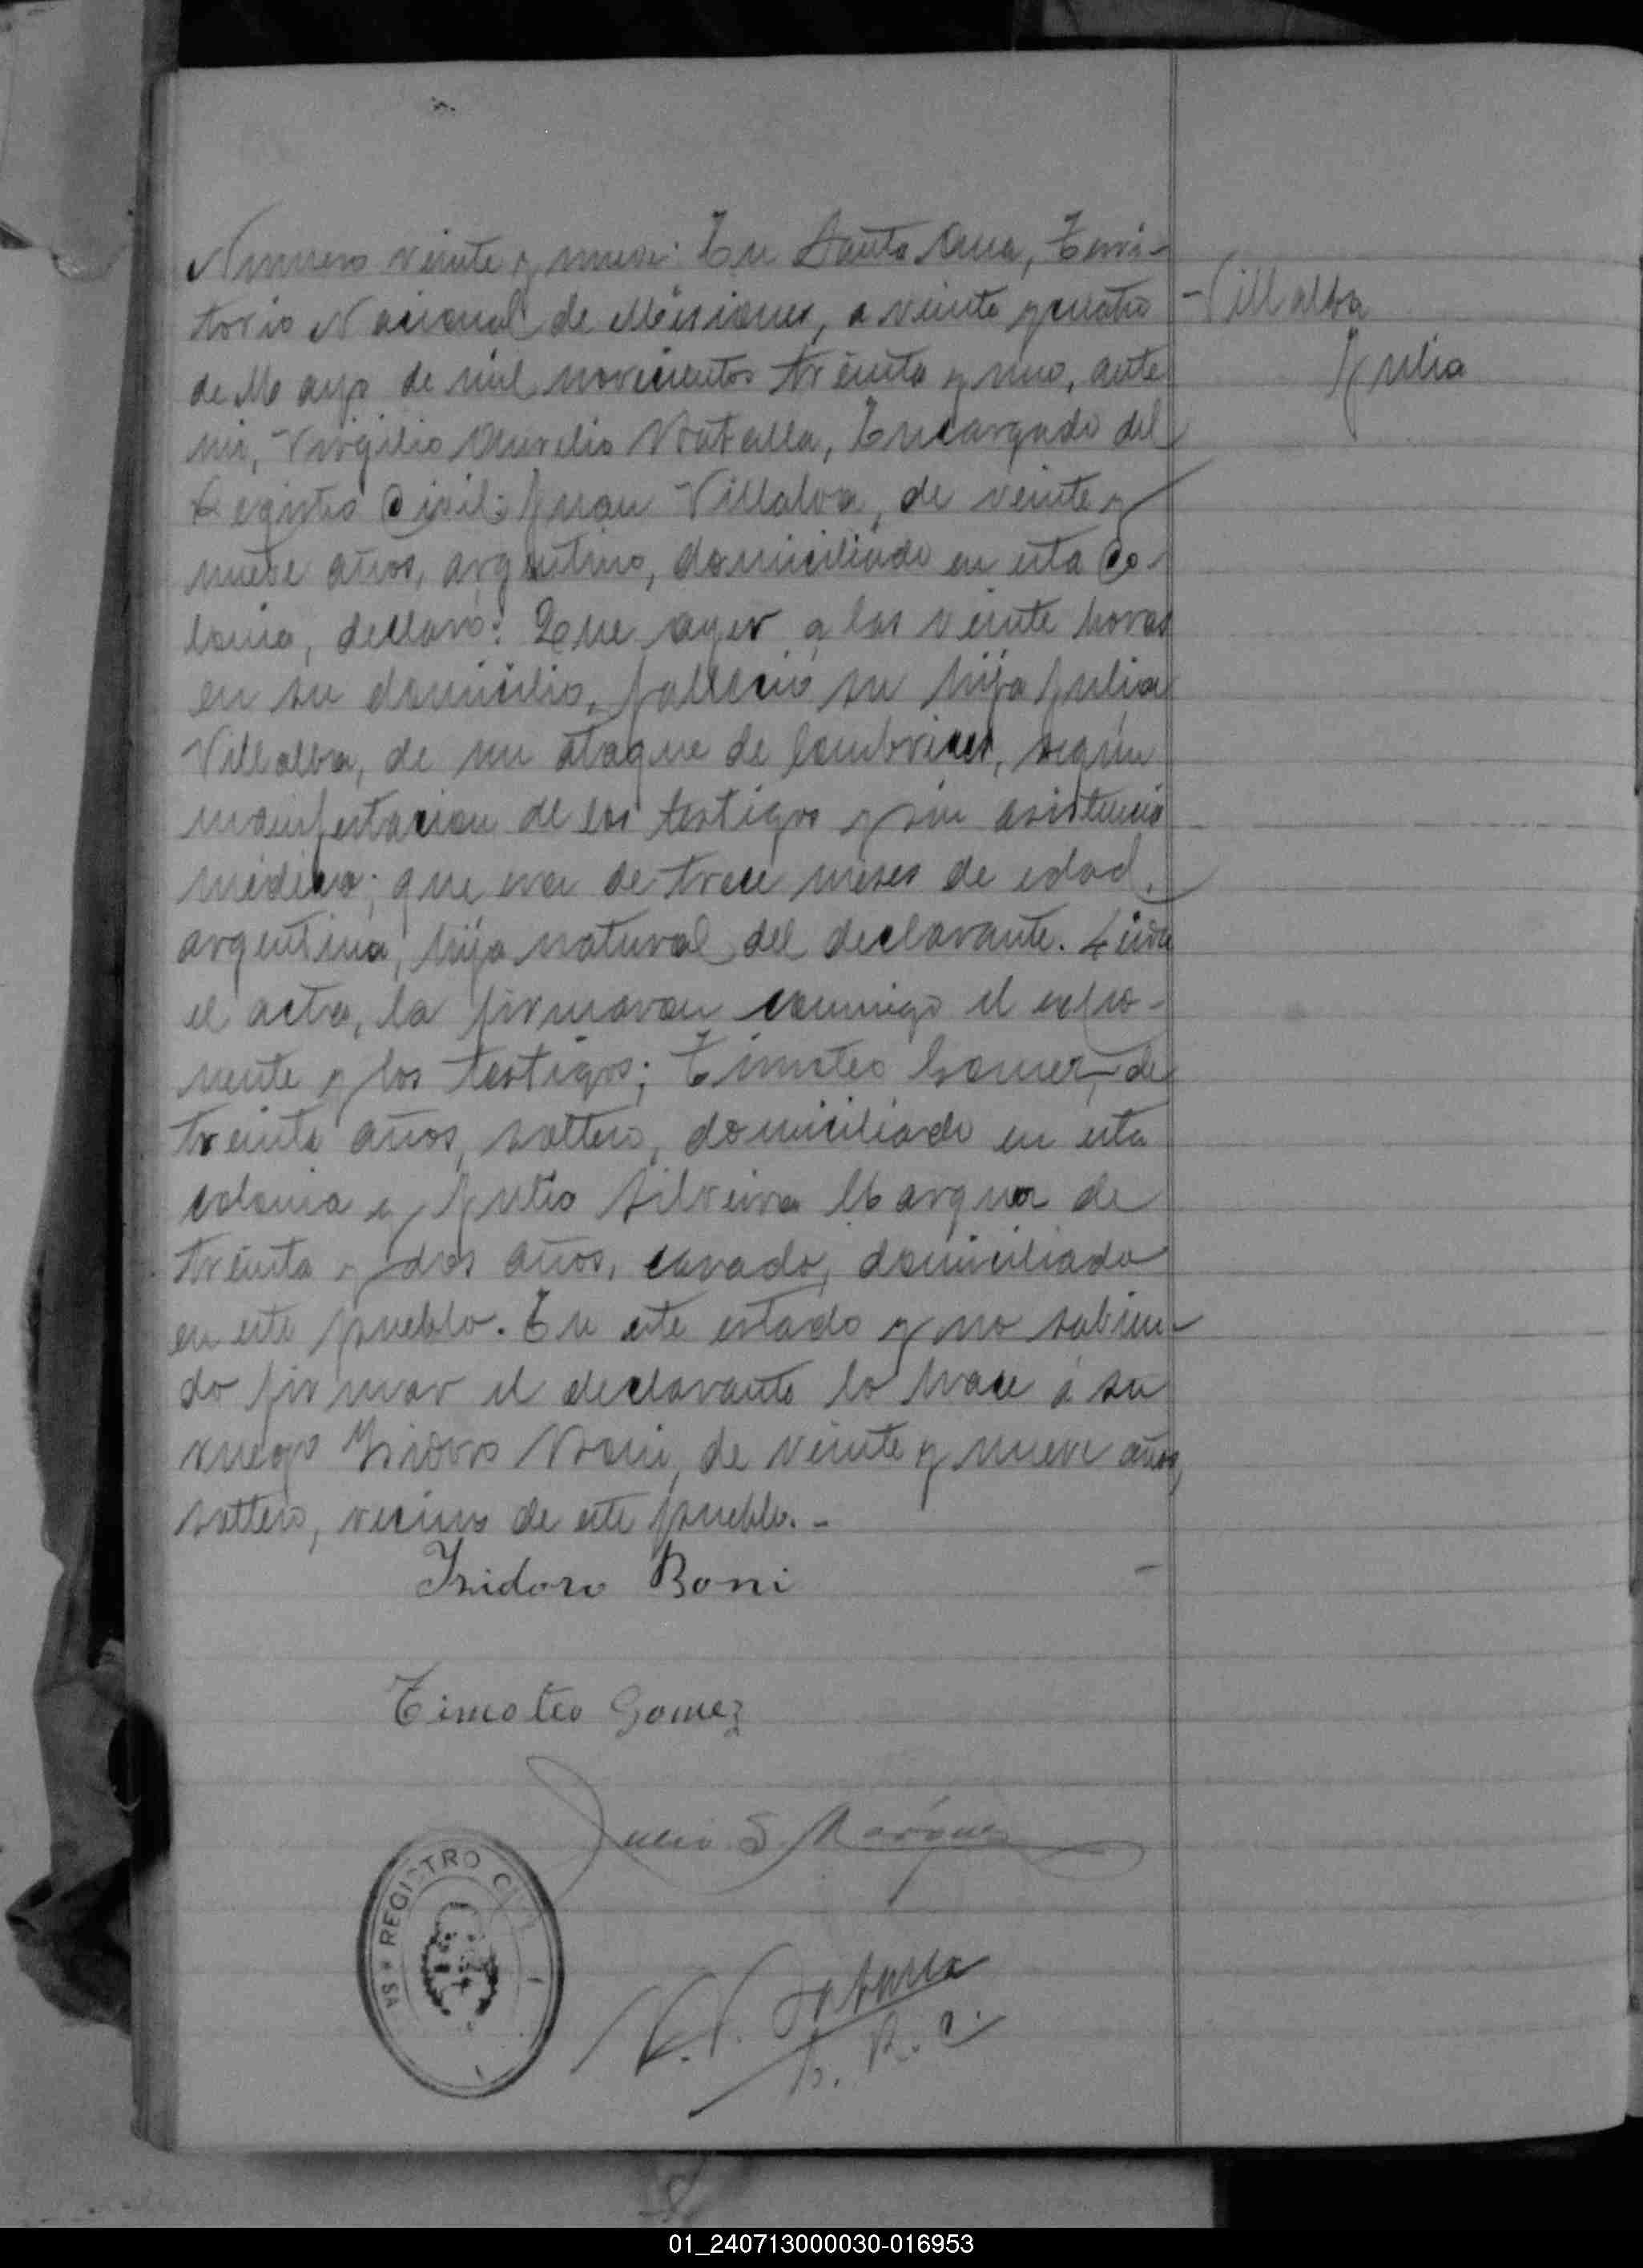 Numero veinte y nueve: En Santa Ana, Terri-
torio Nacional de Misiones, a veinte y cuatro
de Mayo de mil novecientos treinta y uno, ante
mi, Virgilio Aurelio Batalla, Encargado del
Registro Civil: Juan Villalva, de veinte y
nueve años, argentino, domiciliado en esta Co-
lonia, declaró: Que ayer a las veinte horas
en su domicilio, falleció su hija Julia
Villalba, de un ataque de lombrices, según
manifestacion de los testigos y sin asistencia
médica; que era de trece meses de edad,
argentina, hija natural del declarante. Leida
el acta, la firmaron conmigo el expo-
nente y los testigos; Timoteo Gomez, de
treinta años, soltero, domiciliado en esta
colonia y Julio Silveira Marquez de
treinta y dos años, casado, domiciliado
en este pueblo. En este estado y no sabien-
do firmar el declarante lo hace á su
ruego Isidoro Boni, de veinte y nueve años,
soltero, vecino de este pueblo.-
Villalba
Julia
Isidoro Boni
Timoteo Gomez
Julio S. Márquez
V. A. Batalla
E. R. C.
REGISTRO CIVIL
SA
01_240713000030-016953